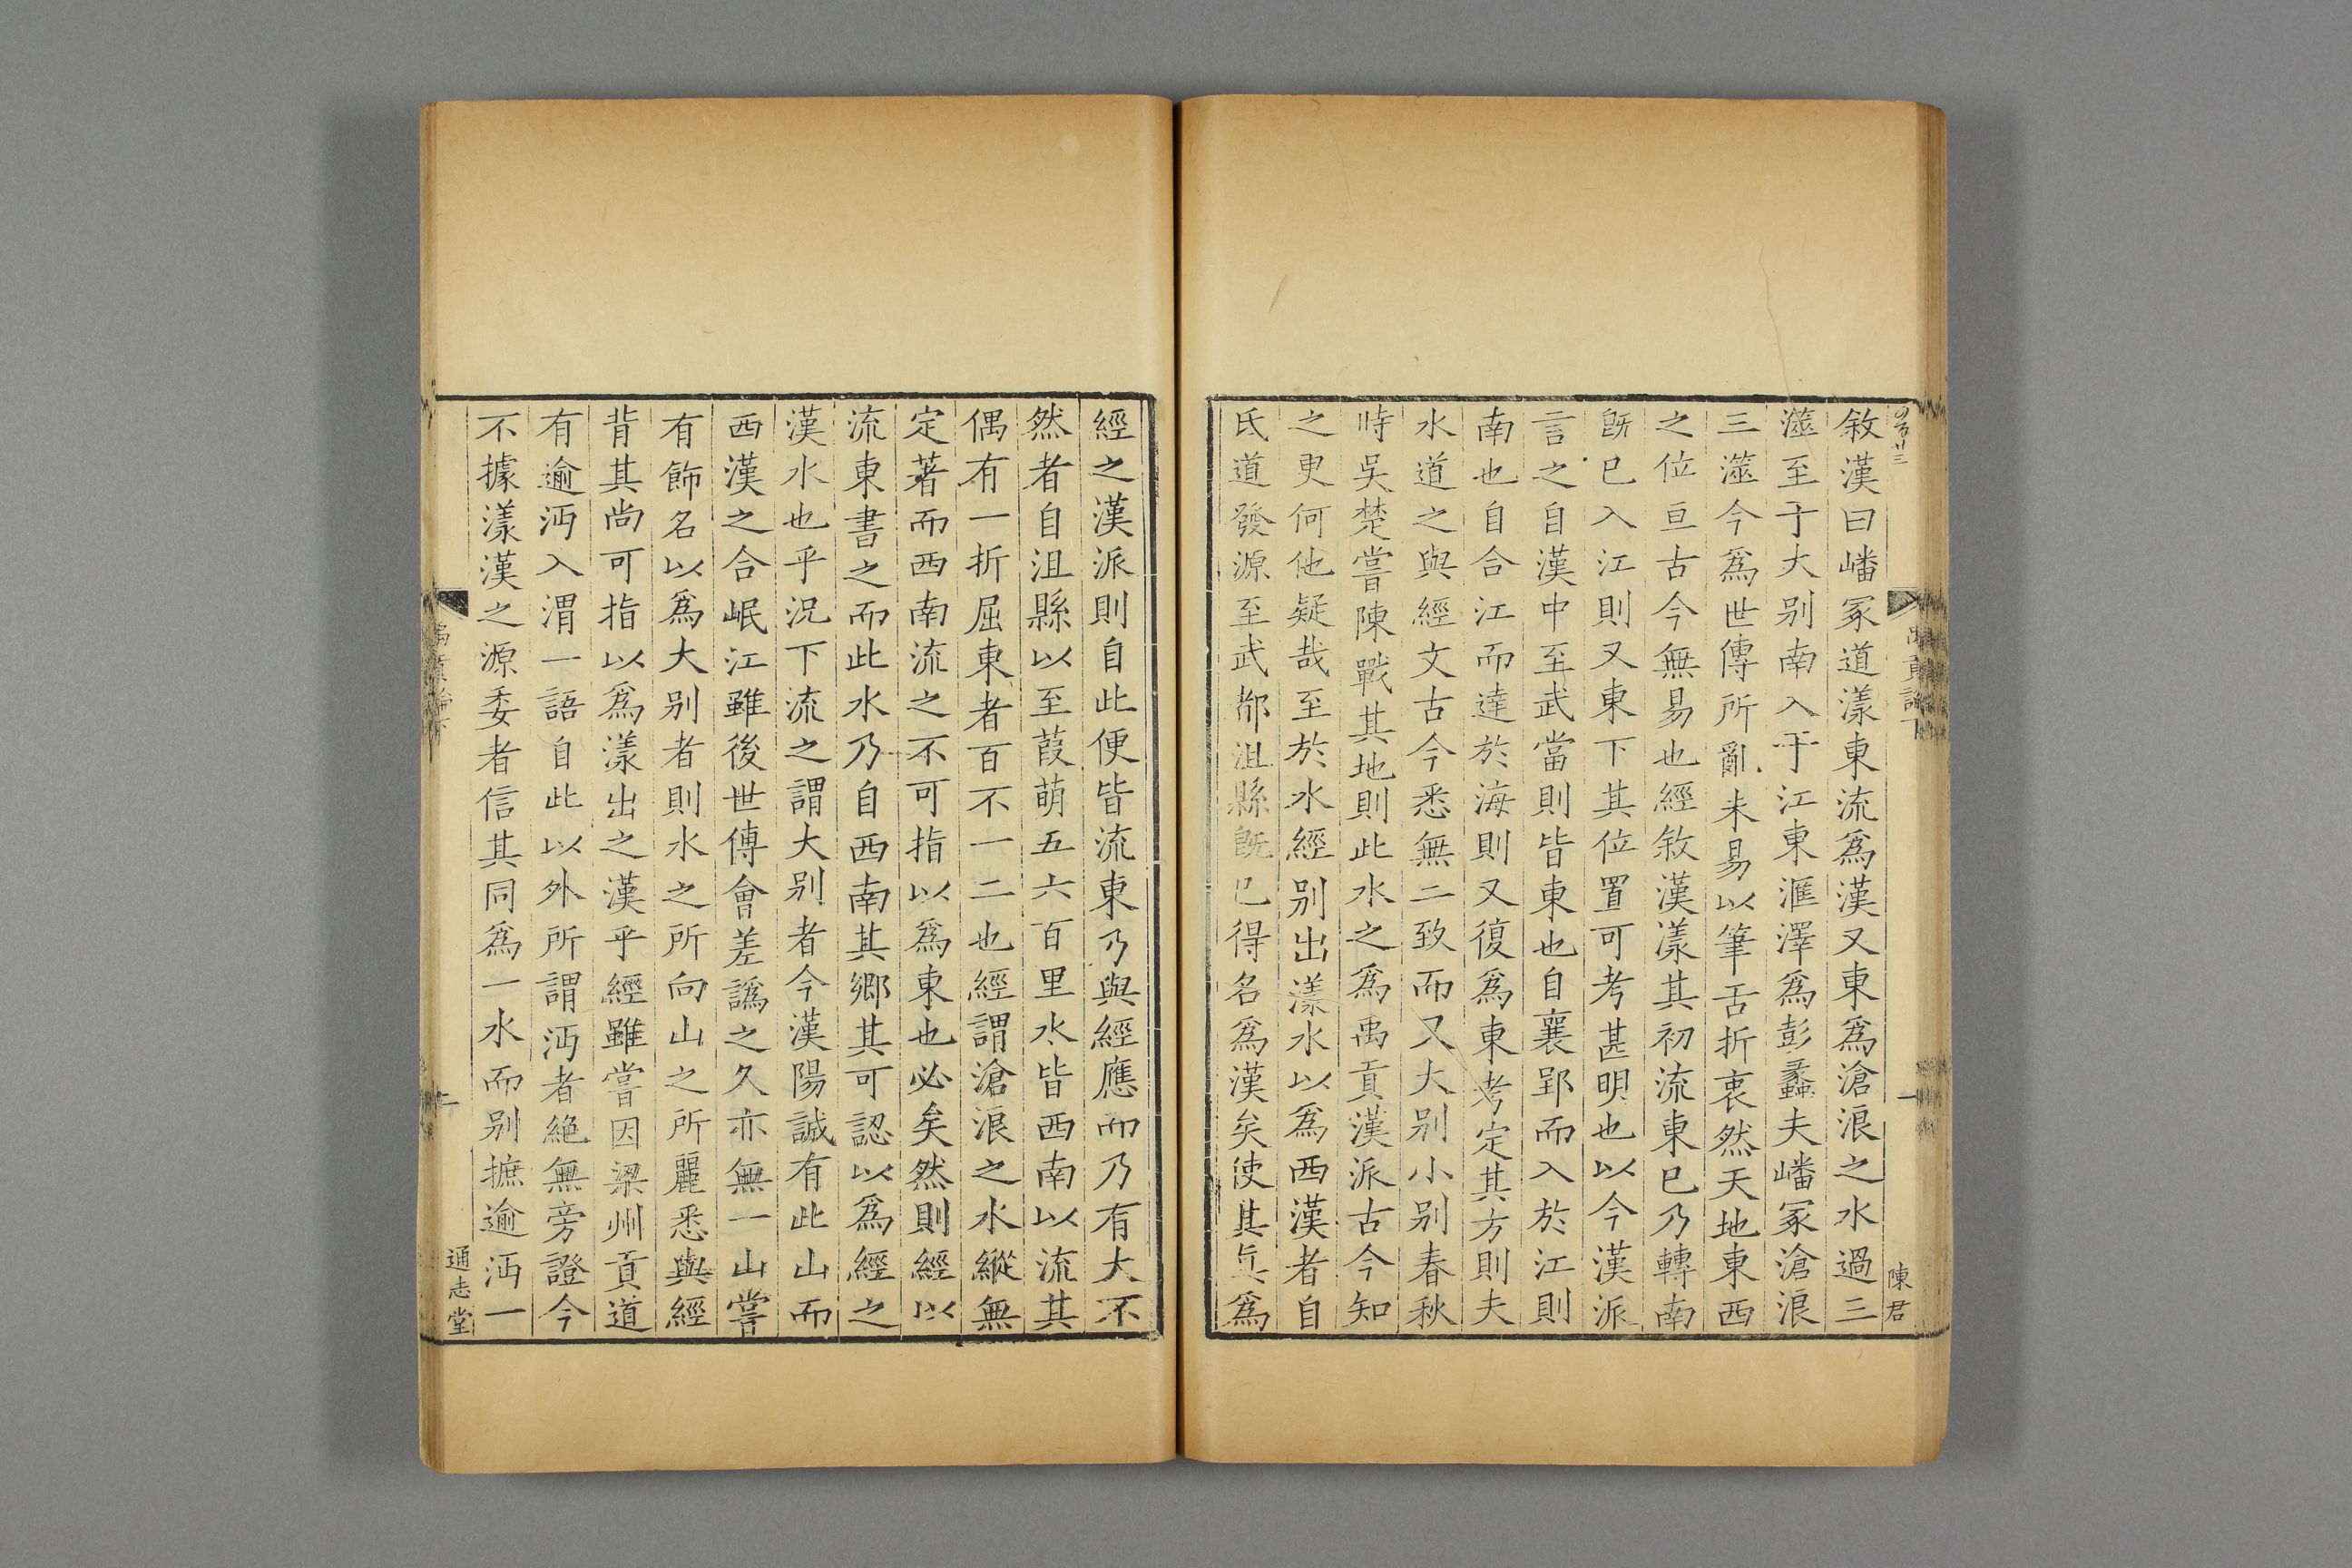 敘漢曰嶓冢道漾東流爲漢又東爲滄浪之水過三
澨至于大别南入于江東滙澤爲彭蠡夫嶓冢滄浪
三澨今爲世傳所亂未易以筆舌折衷然天地東西
之位亘古今無易也經敘漢漾其初流東巳乃轉南
旣巳入江則又東下其位置可考甚明也以今漢派
言之自漢中至武當則皆東也自襄郢而入於江則
南也自合江而達於海則又復爲東考定其方則夫
水道之與經文古今悉無二致而又大别小别春秋
時吳楚嘗陳戰其地則此水之爲禹貢漢派古今知
之更何他疑哉至於水經别出漾水以爲西漢者自
氐道發源至武都沮縣旣巳得名爲漢矣使其眞爲
陳君
經之漢派則自此便皆流東乃與經應而乃有大不
然者自沮縣以至葭萌五六百里水皆西南以流其
偶有一折屈東者百不一二也經謂滄浪之水縱無
定著而西南流之不可指以爲東也必矣然則經以
流東書之而此水乃自西南其鄉其可認以爲經之
漢水也乎况下流之謂大别者今漢陽誠有此山而
西漢之合岷江雖後世傳會差譌之久亦無一山嘗
有飾名以爲大别者則水之所向山之所麗悉與經
背其尚可指以爲漾出之漢乎經雖嘗因梁州貢道
有逾沔入渭一語自此以外所謂沔者絶無旁證今
不據漾漢之源委者信其同爲一水而别摭逾沔一
通志堂